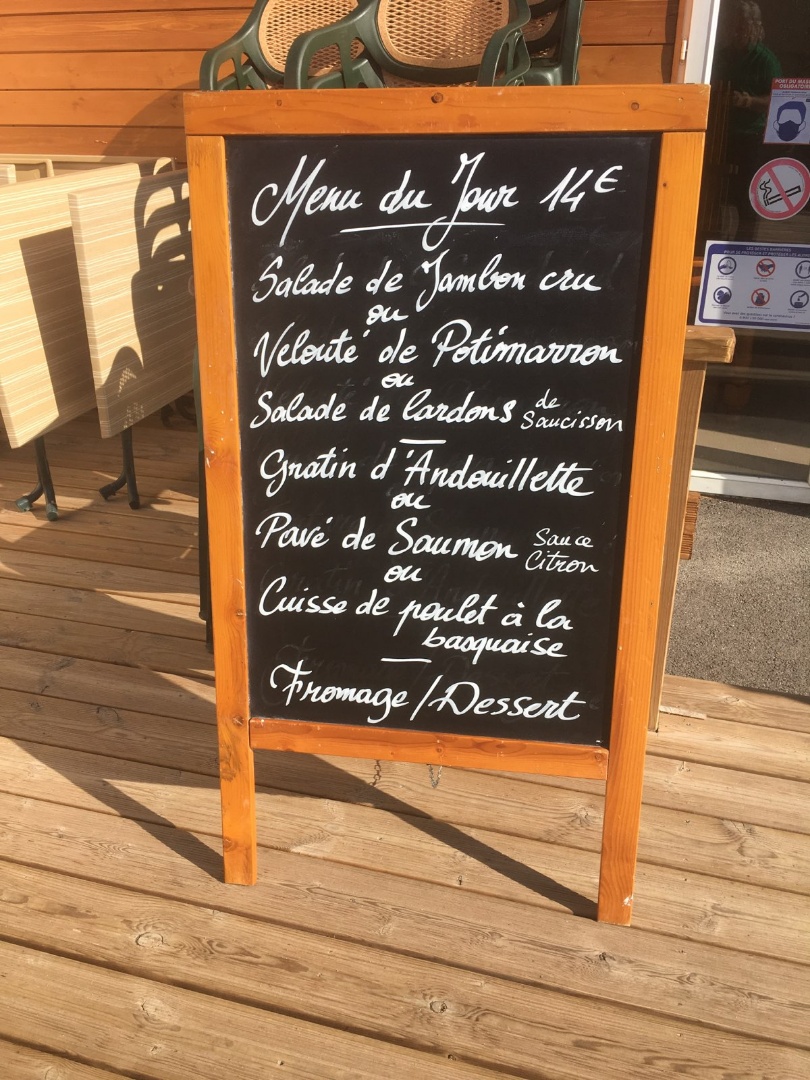 Menu du Jour 14€
Salade de Jambon cru
ou
Velouté de Potimarron
ou
Salade de lardons de Saucisson
Gratin d'Andouillette
ou
Pavé de Saumon Sauce Citron
ou
Cuisse de poulet à la
basquaise
Fromage/Dessert
PORT DU MASQUE
OBLIGATOIRE